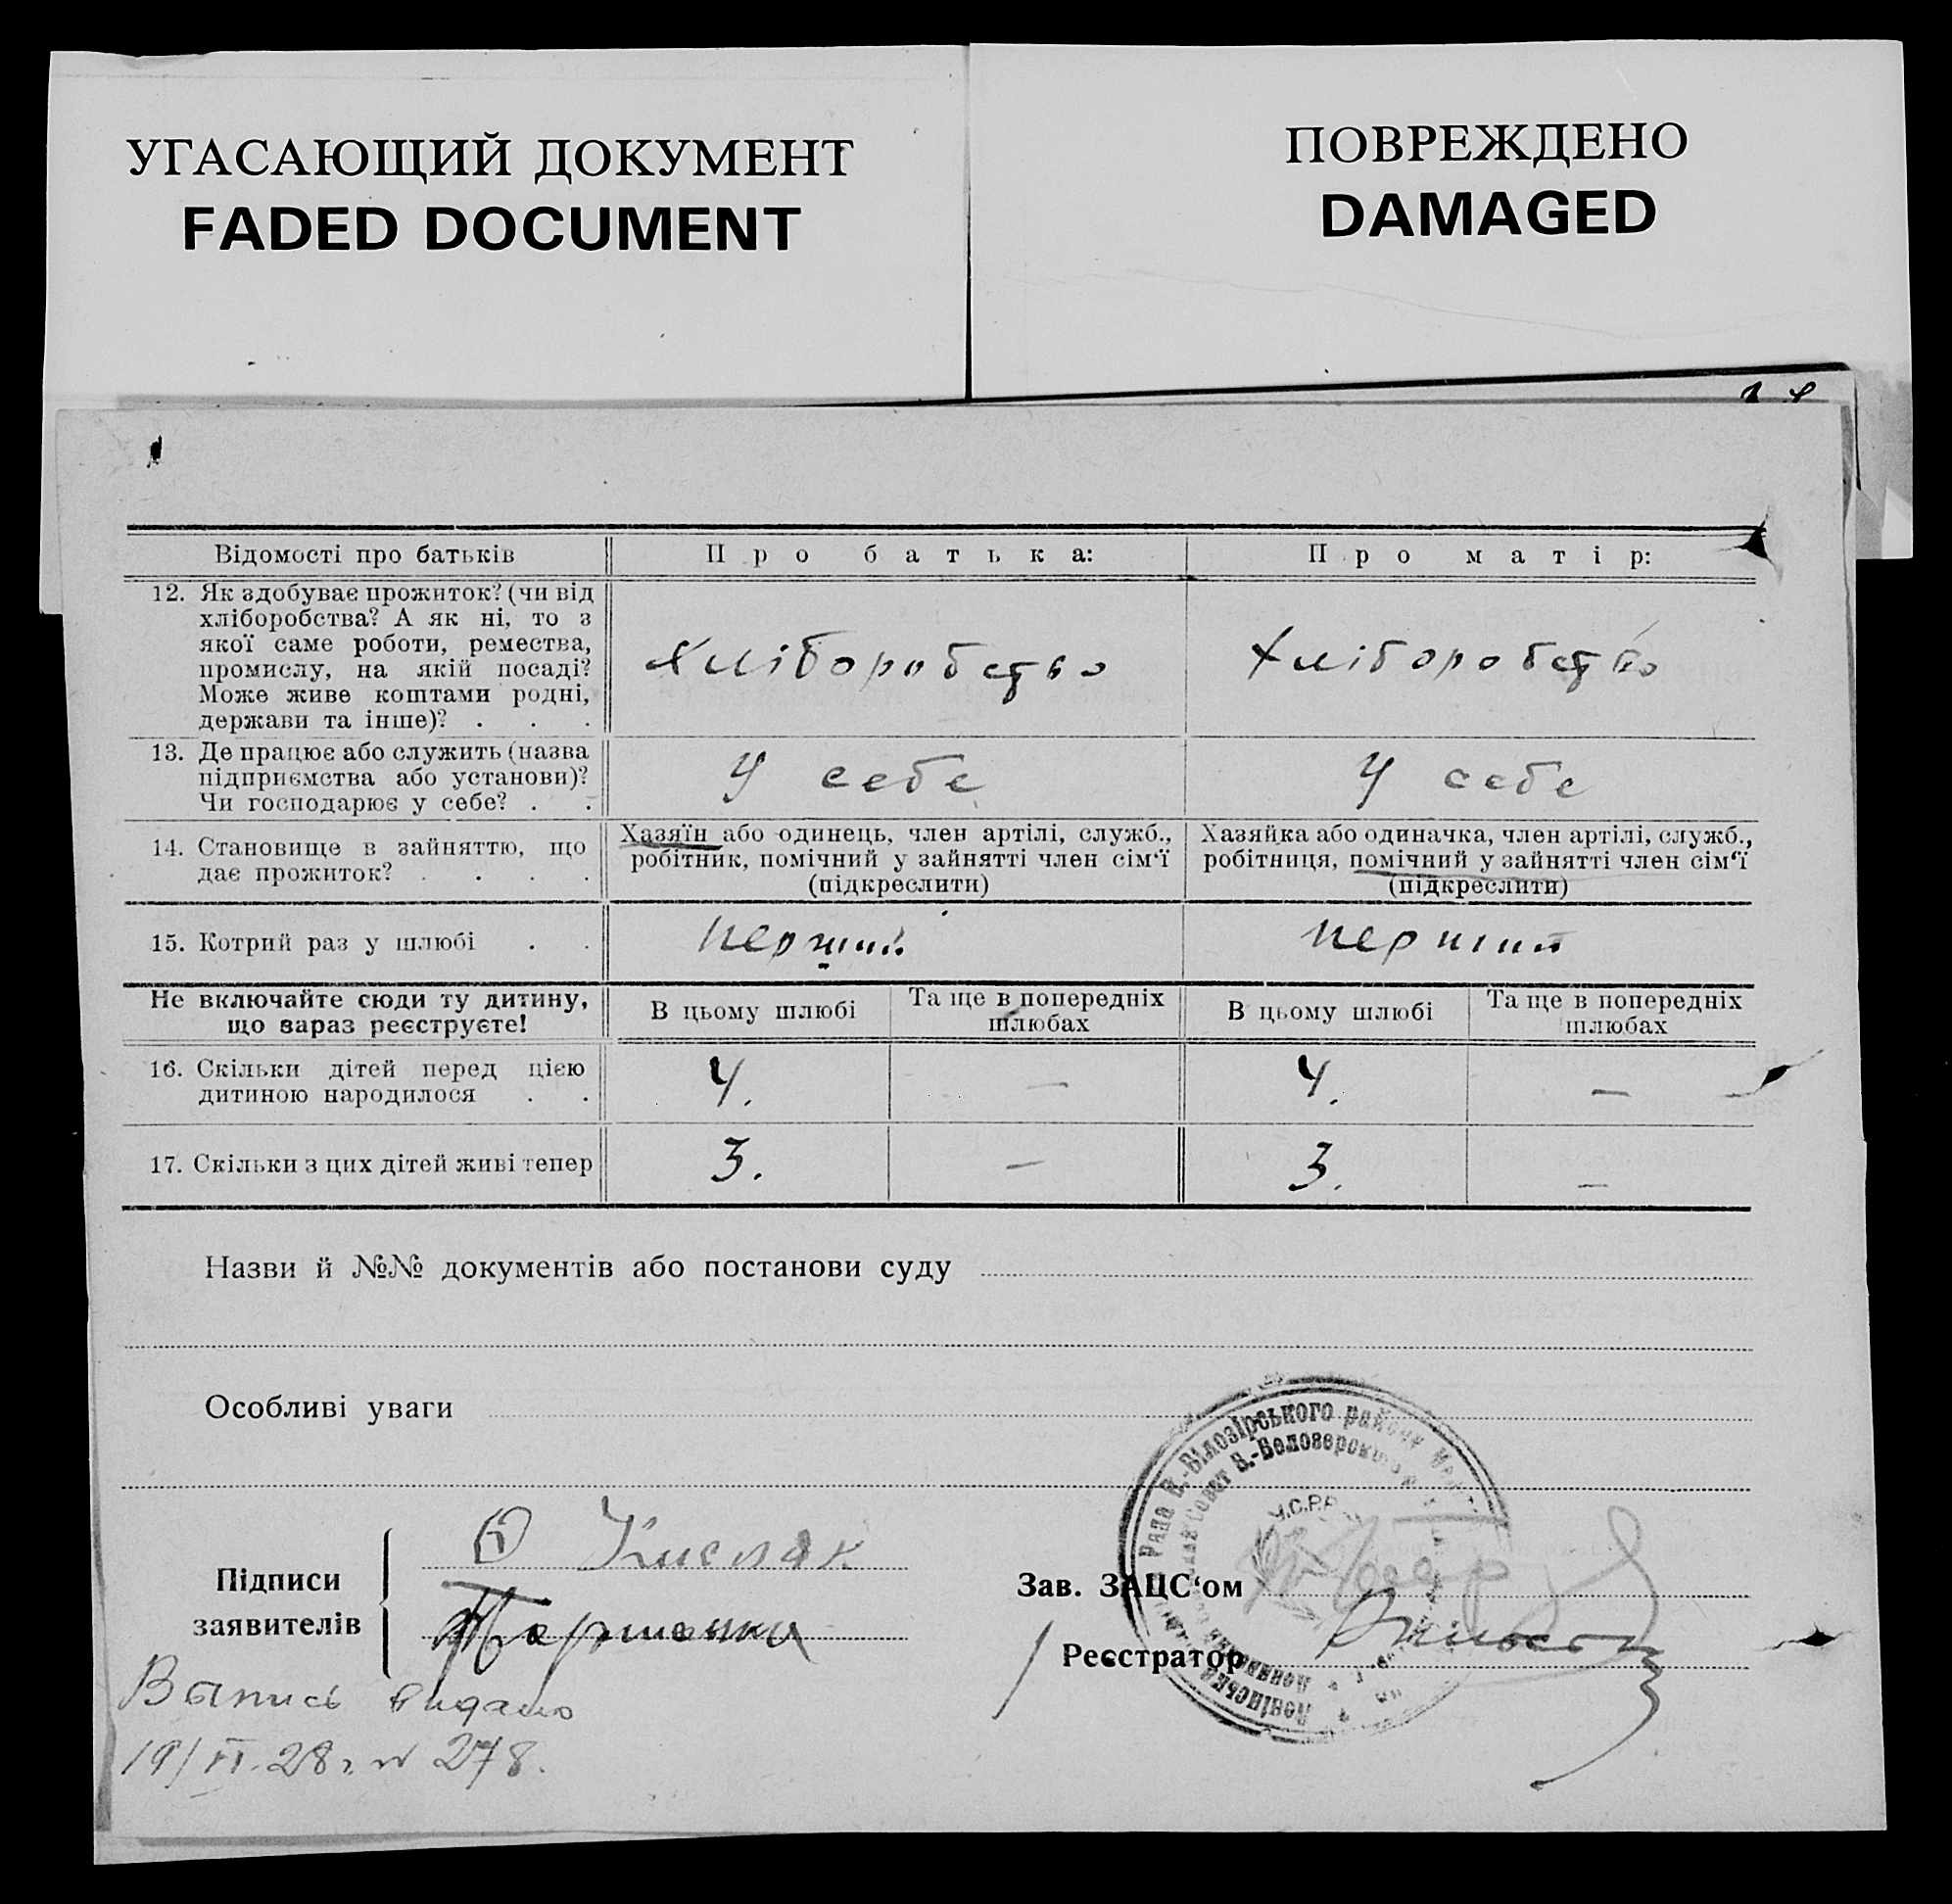 УГАСАЮЩИЙ ДОКУМЕНТ
FADED DOCUMENT
ПОВРЕЖДЕНО
DAMAGED
Відомості про батьків
Про батька:
Про матір:
12. Як здобуває прожиток? (чи від
хліборобства? А як ні, то з
якої саме роботи, ремества,
промислу, на якій посаді?
Може живе коштами родні,
держави та інше)? . . .
Хліборобство
Хліборобство
13. Де працює або служить (назва
підприємства або установи)?
Чи господарює у себе? . .
У себе
У себе
14. Становище в зайняттю, що
дає прожиток? . . . .
Хазяїн або одинець, член артілі, служб.,
робітник, помічний у зайнятті член сім‘ї
(підкреслити)
Хазяйка або одиначка, член артілі, служб.,
робітниця, помічний у зайнятті член сім‘ї
(підкреслити)
15. Котрий раз у шлюбі . .
перший
перший
Не включайте сюди ту дитину,
що зараз реєструєте!
В цьому шлюбі
Та ще в попередніх
шлюбах
В цьому шлюбі
Та ще в попередніх
шлюбах
16. Скільки дітей перед цією
дитиною народилося . .
4.
—
4.
—
17. Скільки з цих дітей живі тепер
3.
—
3.
—
Назви й №№ документів або постанови суду
Особливі уваги
Підписи
заявителів
Кисляк
Зав. ЗАЦС‘ом
Реєстратор
Рада В.-Білозірського району
Совет В.-Белозерского
У.С.Р.Р.
Випись видано
19/VI.28 г. № 278.